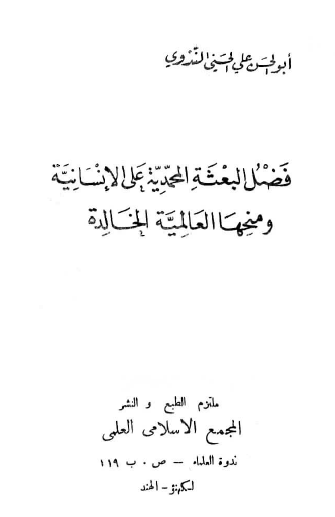 أبو الحسن علي الحسني الندوي
فَضْلُ البعْثَةِ المحمّديّة عَلى الإنسَانيَّة
ومنحِهَا العَالميَّة الخَالِدة
ملتزم الطبع و النشر
المجمع الاسلامى العلمى
ندوة العلماء — ص . ب ١١٩
لكهنؤ - الهند